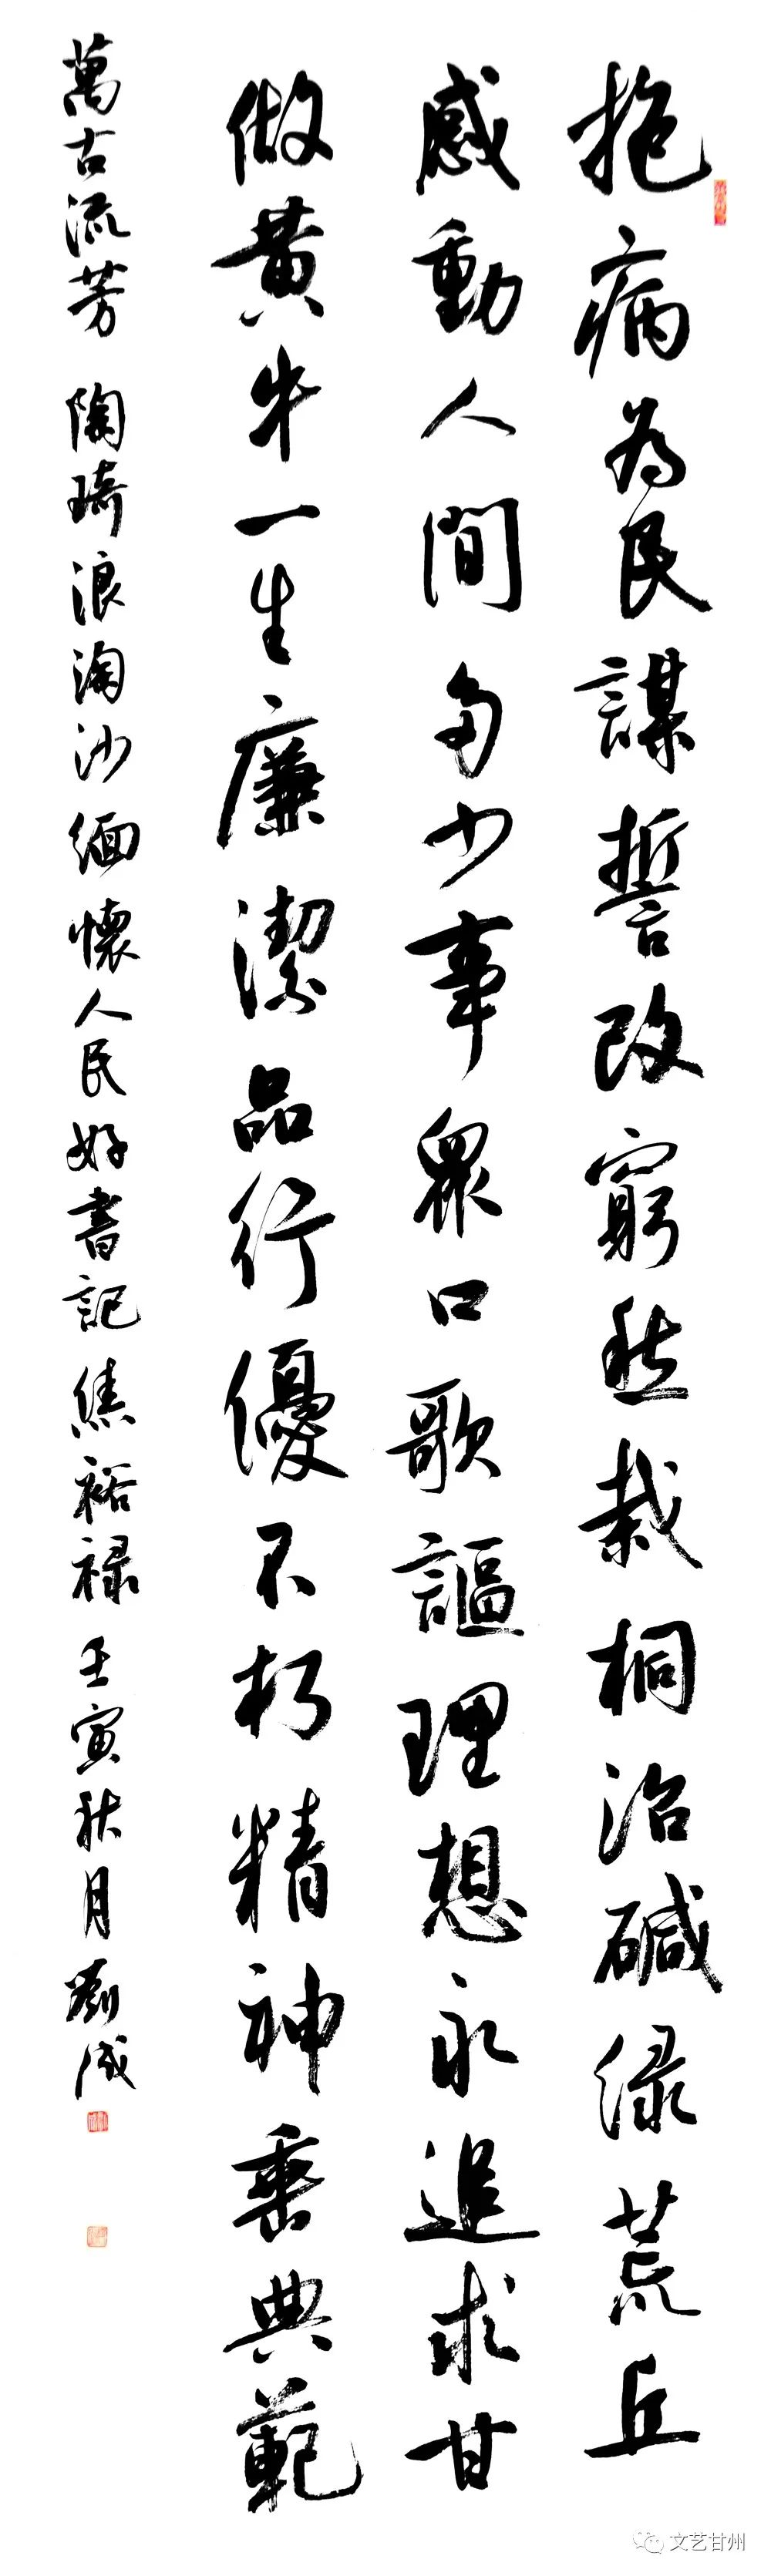 抱病為民謀誓改窮愁栽桐治碱緑荒丘
感動人間多少事眾口歌謳理想永追求甘
做黄牛一生廉潔品行優不朽精神垂典範
萬古流芳 陶琦浪淘沙緬懷人民好書記焦裕禄 壬寅秋月劉
文艺甘州